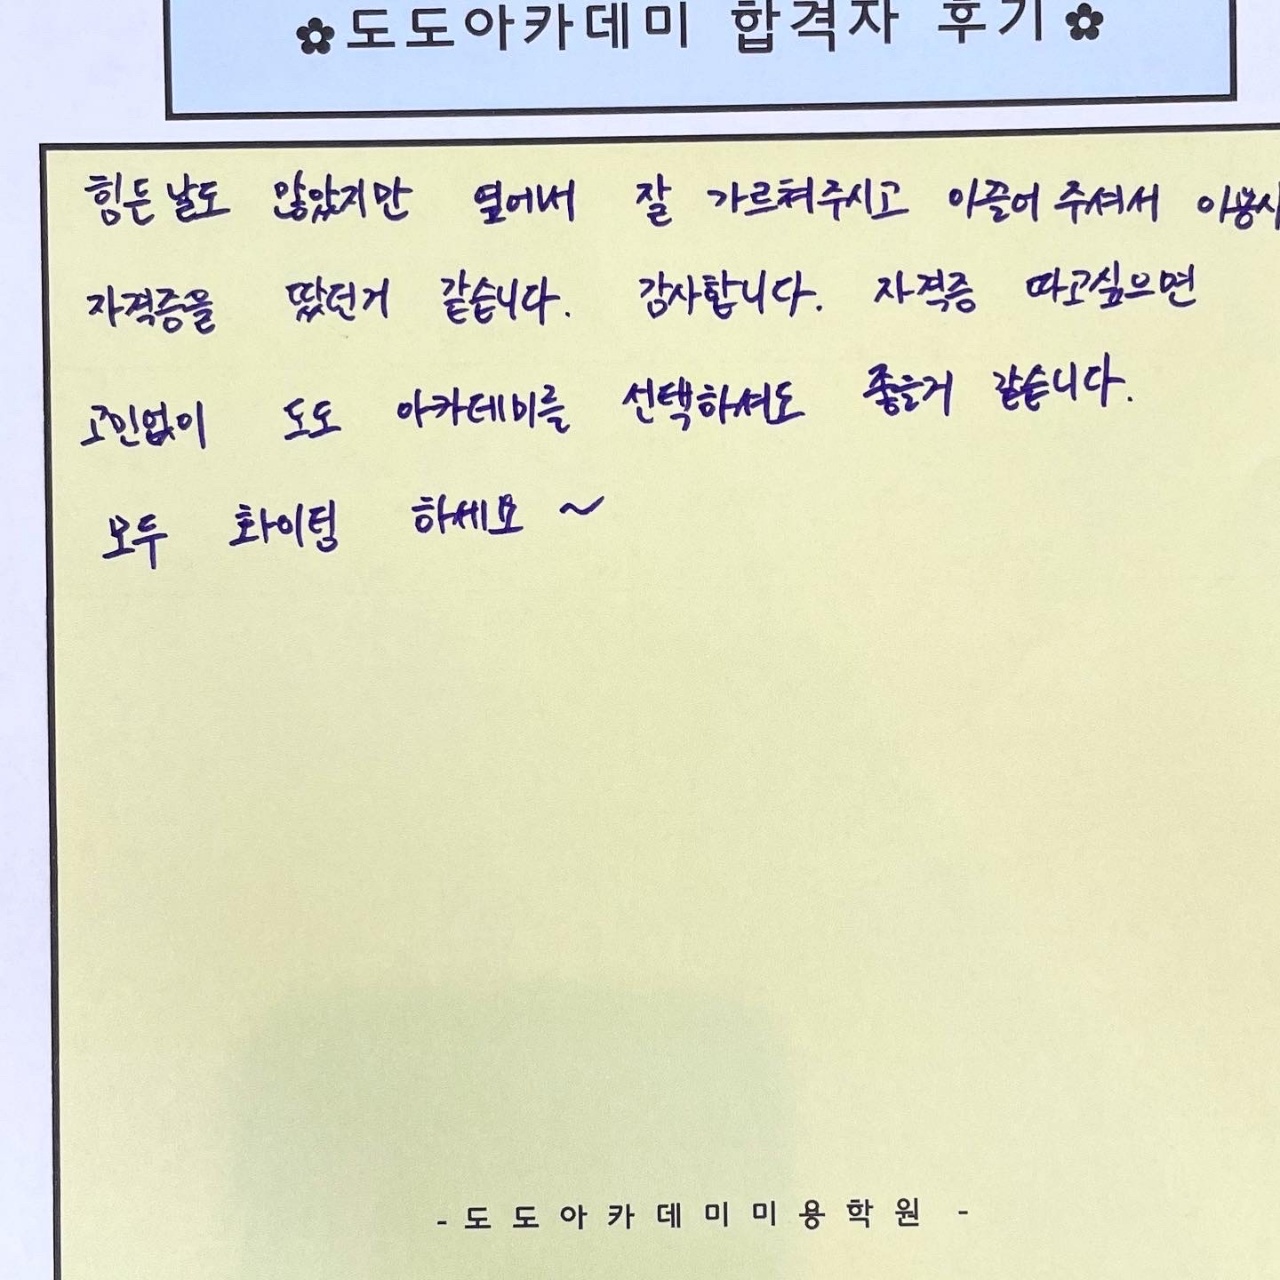 ✿도도아카데미 합격자 후기✿
힘든 날도 많았지만 옆에서 잘 가르쳐주시고 이끌어 주셔서 이용사
자격증을 땄던거 같습니다. 감사합니다. 자격증 따고싶으면
고민없이 도도 아카데미를 선택하셔도 좋을거 같습니다.
모두 화이팅 하세요 ~
- 도도아카데미미용학원 -